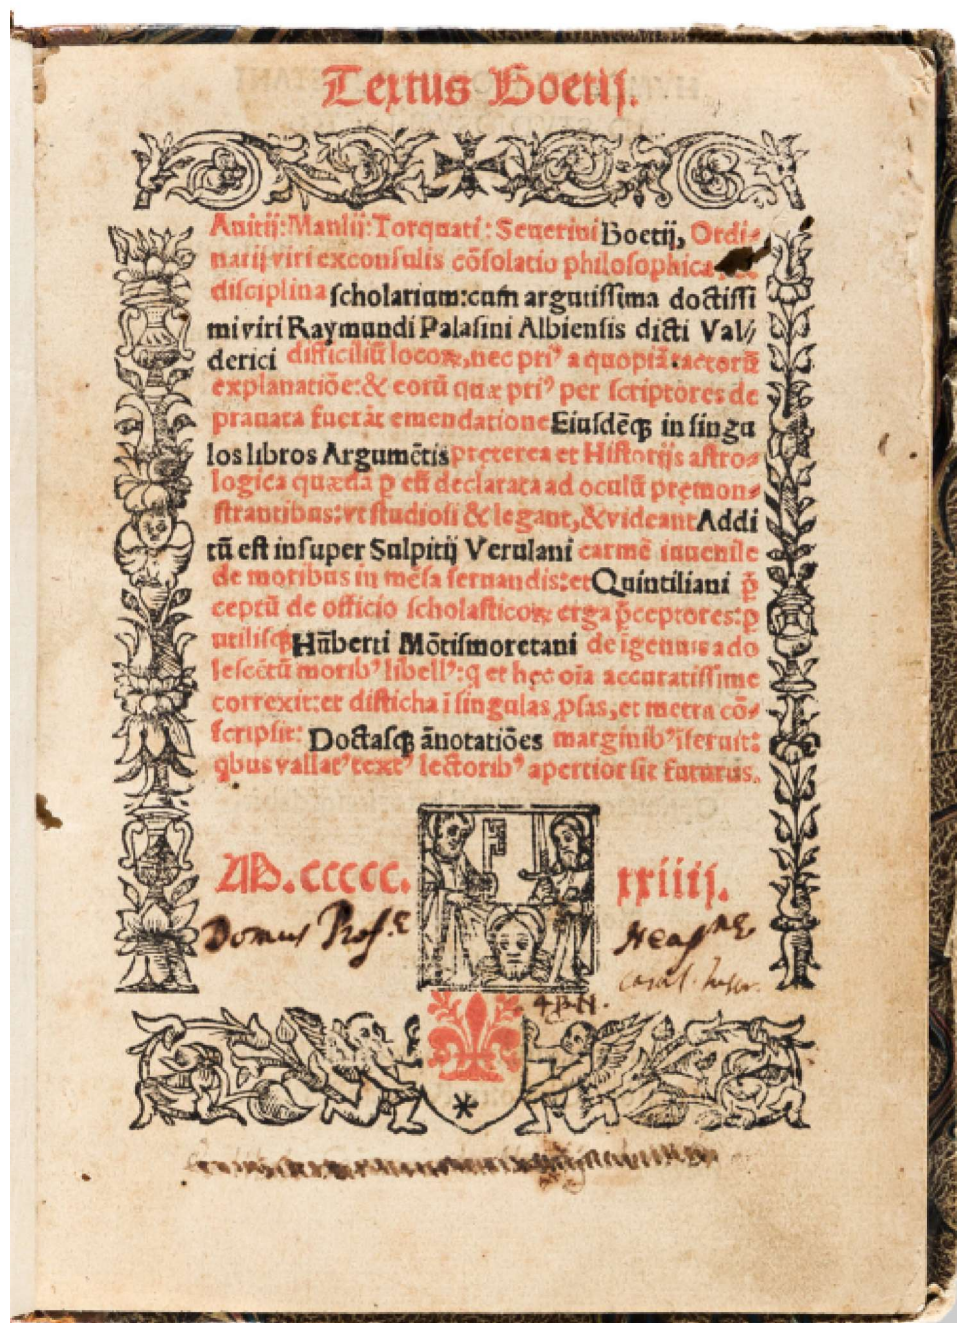 Textus Boetij.
Anitij: Manlij: Torquati: Seuerini Boetij, Ordi⸗
narij viri exconsulis cōsolatio philosophica
disciplina scholarium: cum argutissima doctissi
mi viri Raymundi Palasini Albiensis dicti Val⸗
derici difficiliū locoꝝ, nec priꝰ a quopiā tactorū
explanatiōe: & eorū quæ priꝰ per scriptores de
prauata fuerāt emendatione Eiusdēqꝫ in singu
los libros Argumētis pręterea et Historijs astro⸗
logica quædā ꝑ eū declarata ad oculū pręmon⸗
strantibus: vt studiosi & legant, & videant Addi
tū est insuper Sulpitij Verulani carmē iuuenile
de moribus in mēsa seruandis: et Quintiliani p̄
ceptū de officio scholasticoꝝ erga p̄ceptores: ꝑ
utilisqꝫ Hūberti Mōtismoretani de īgenuis ado
lescētū moribꝰ libellꝰ: q et hęc oīa accuratissime
correxit: et disticha ī singulas ꝓsas, et metra cō⸗
scripsit: Doctasqꝫ ānotatiōes marginibꝰ īseruit:
qbus vallatꝰ textꝰ lectoribꝰ apertior sit futurus.
M.CCCCC. xxiiij.
Domus Prof.e